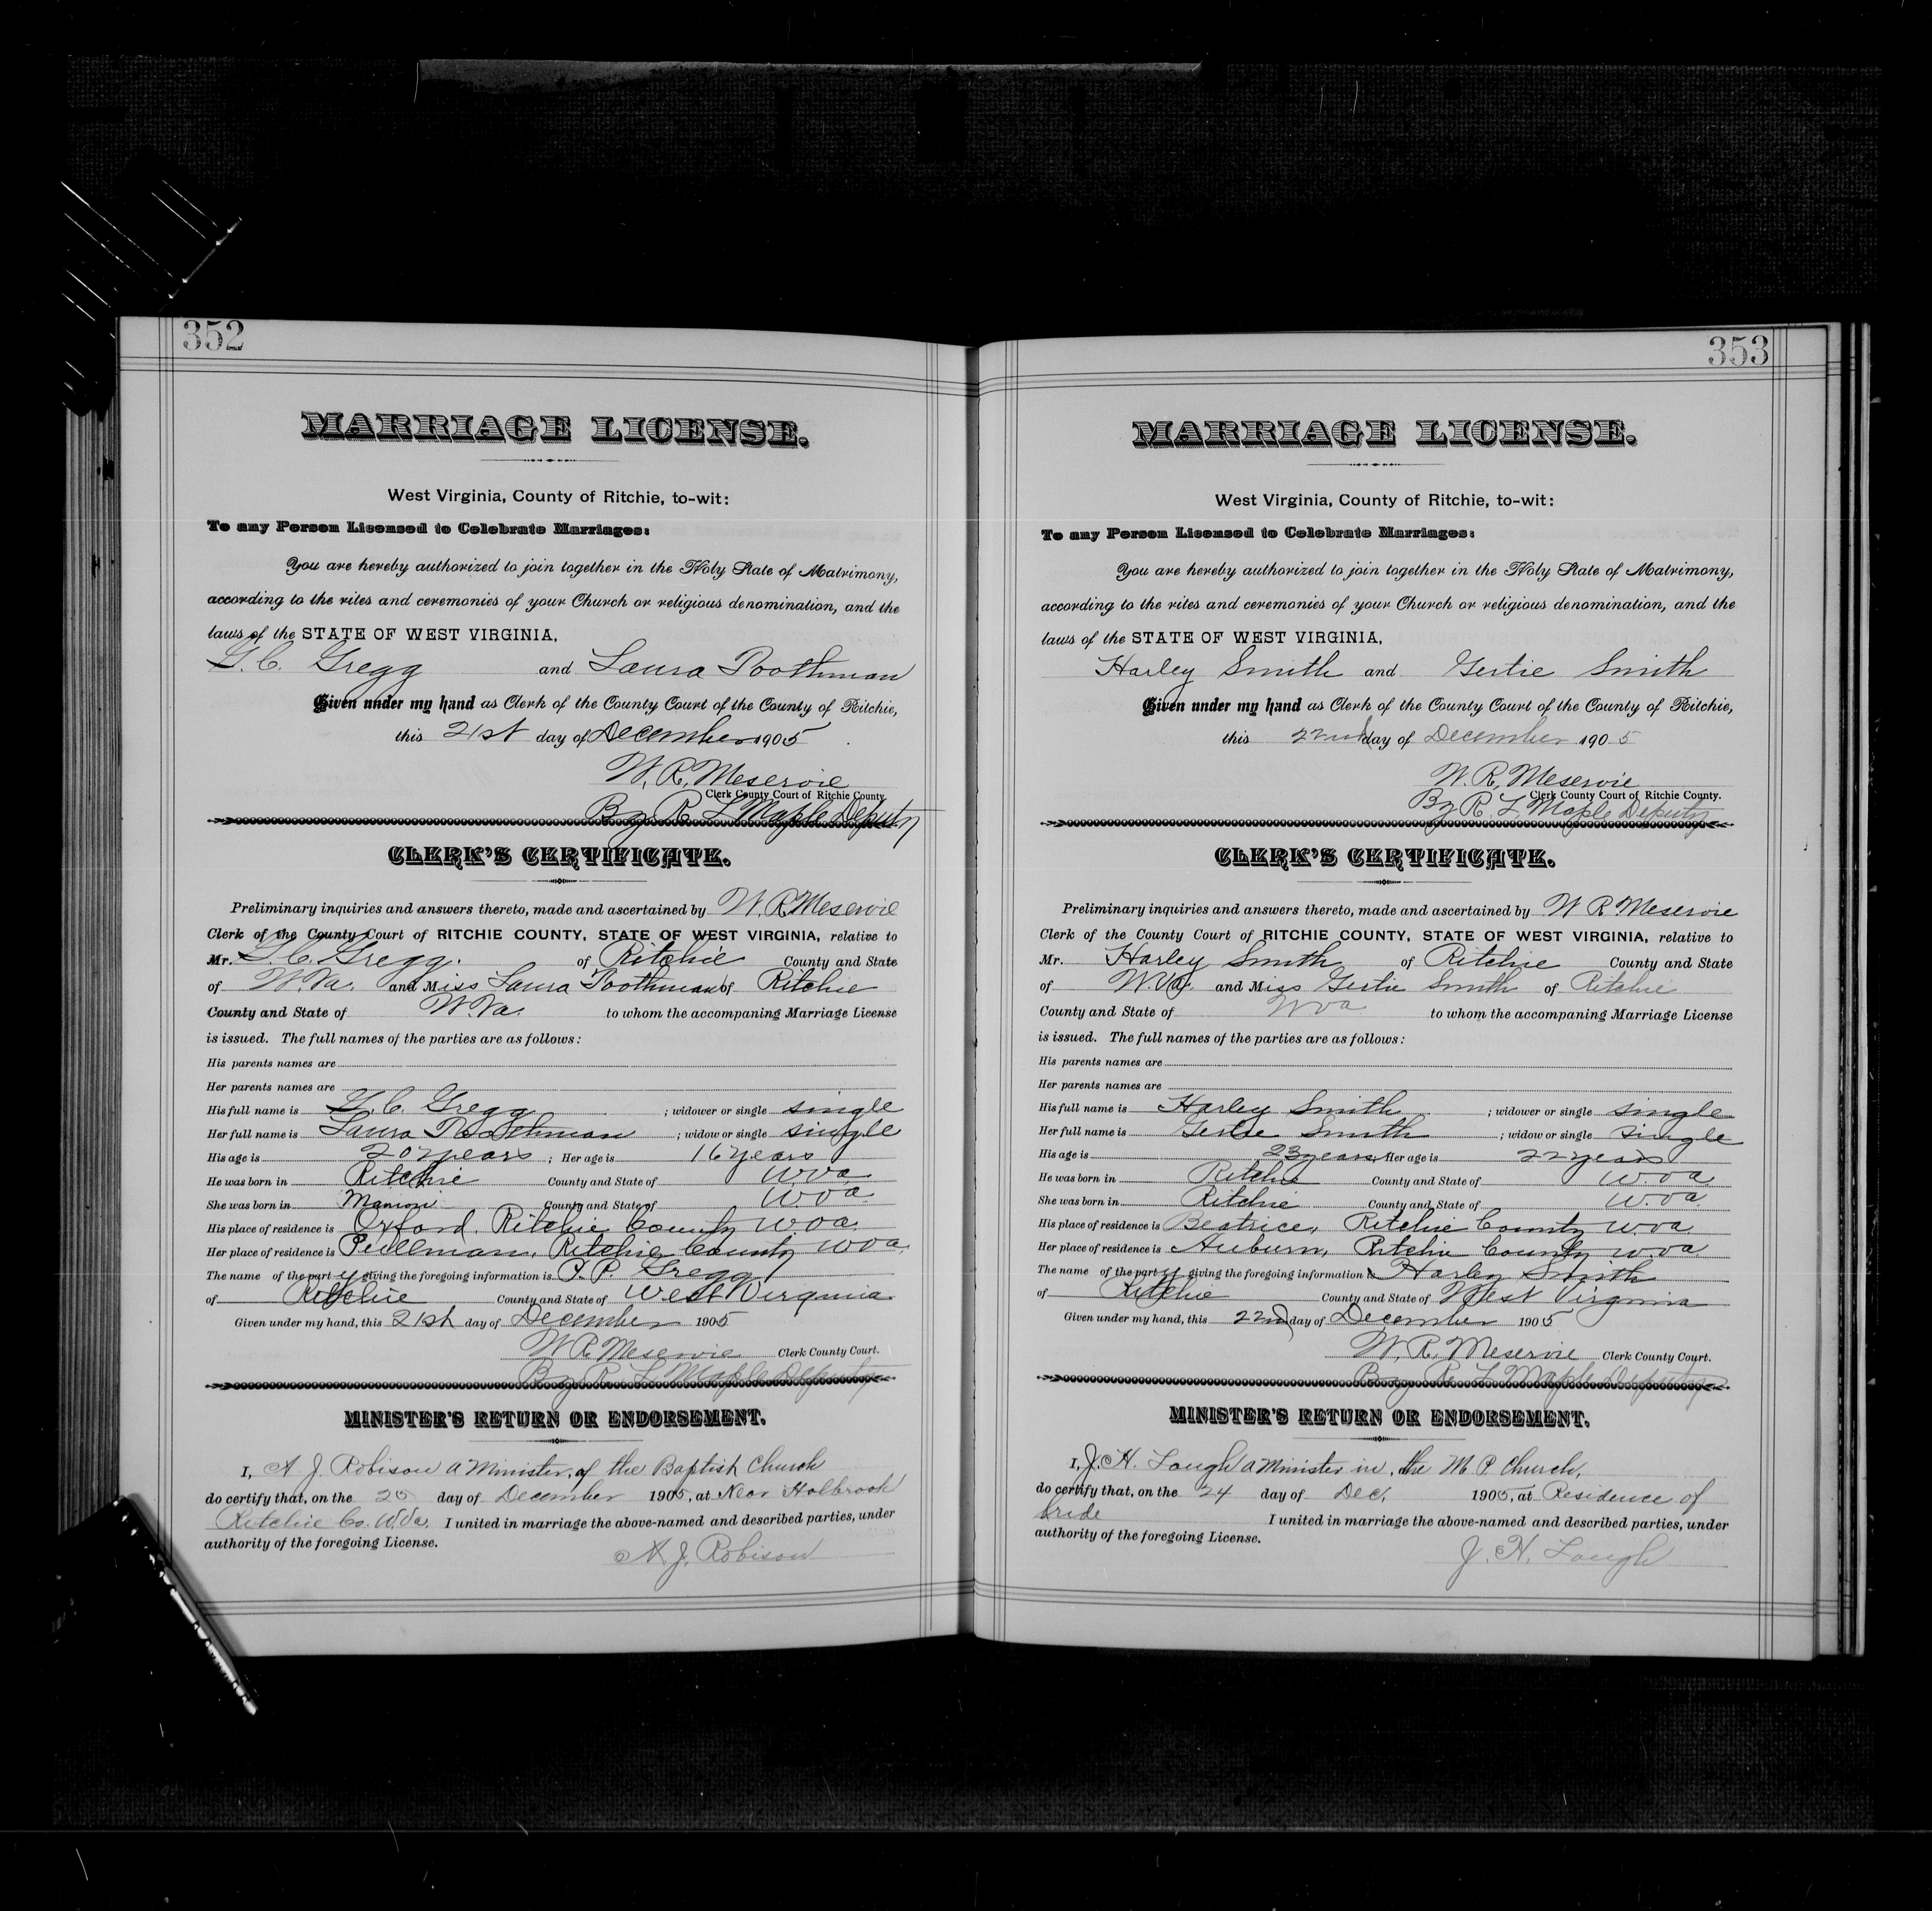 352
MARRIAGE LICENSE.
West Virginia, County of Ritchie, to-wit:
To any Person Licensed to Celebrate Marriages:
You are hereby authorized to join together in the Holy State of Matrimony,
according to the rites and ceremonies of your Church or religious denomination, and the
laws of the STATE OF WEST VIRGINIA,
G. C. Gregg and Laura Poothman
Given under my hand as Clerk of the County Court of the County of Ritchie,
this 21st day of December 1905
W. R. Meservie
Clerk County Court of Ritchie County.
By R L Maple Deputy
CLERK'S CERTIFICATE.
Preliminary inquiries and answers thereto, made and ascertained by W. R Meservie
Clerk of the County Court of RITCHIE COUNTY, STATE OF WEST VIRGINIA, relative to
Mr. G. C. Gregg. of Ritchie County and State
of W. Va. and Miss Laura Poothman of Ritchie
County and State of W. Va. to whom the accompaning Marriage License
is issued. The full names of the parties are as follows:
His parents names are
Her parents names are
His full name is G. C. Gregg ; widower or single single
Her full name is Laura Poothman ; widow or single single
His age is 20 years ; Her age is 16 years
He was born in Ritchie County and State of W.va
She was born in County and State of W.va
His place of residence is Oxford, Ritchie County W.va.
Her place of residence is Pullman, Ritchie County W.va.
The name of the party giving the foregoing information is P. P. Gregg
of Ritchie County and State of West Virginia
Given under my hand, this 21st day of December 1905
W R Meservie Clerk County Court.
By R L Maple Deputy
MINISTER'S RETURN OR ENDORSEMENT.
I, A J. Robison a Minister, of the Baptist Church
do certify that, on the 25 day of December 1905, at Near Holbrook
Ritchie Co. W.Va. I united in marriage the above-named and described parties, under
authority of the foregoing License.
A. J. Robison
353
MARRIAGE LICENSE.
West Virginia, County of Ritchie, to-wit:
To any Person Licensed to Celebrate Marriages:
You are hereby authorized to join together in the Holy State of Matrimony,
according to the rites and ceremonies of your Church or religious denomination, and the
laws of the STATE OF WEST VIRGINIA,
Harley Smith and Gertie Smith
Given under my hand as Clerk of the County Court of the County of Ritchie,
this 22nd day of December 1905
W. R. Meservie
Clerk County Court of Ritchie County.
By R. L Maple Deputy
CLERK'S CERTIFICATE.
Preliminary inquiries and answers thereto, made and ascertained by W R Meservie
Clerk of the County Court of RITCHIE COUNTY, STATE OF WEST VIRGINIA, relative to
Mr. Harley Smith of Ritchie County and State
of W. Va. and Miss Gertie Smith of Ritchie
County and State of W va to whom the accompaning Marriage License
is issued. The full names of the parties are as follows:
His parents names are
Her parents names are
His full name is Harley Smith ; widower or single single
Her full name is Gertie Smith ; widow or single single
His age is 23 years ; Her age is 22 years
He was born in Ritchie County and State of W.va
She was born in Ritchie County and State of W.va.
His place of residence is Beatrice, Ritchie County W.va.
Her place of residence is Auburn, Ritchie County W.va.
The name of the party giving the foregoing information is Harley Smith
of Ritchie County and State of West Virginia
Given under my hand, this 22nd day of December 1905
W. R. Meservie Clerk County Court.
By R L Maple Deputy
MINISTER'S RETURN OR ENDORSEMENT.
I, J. H. Lough a Minister in, the M. P. Church,
do certify that, on the 24 day of Dec, 1905, at Residence of
bride I united in marriage the above-named and described parties, under
authority of the foregoing License.
J. H. Lough